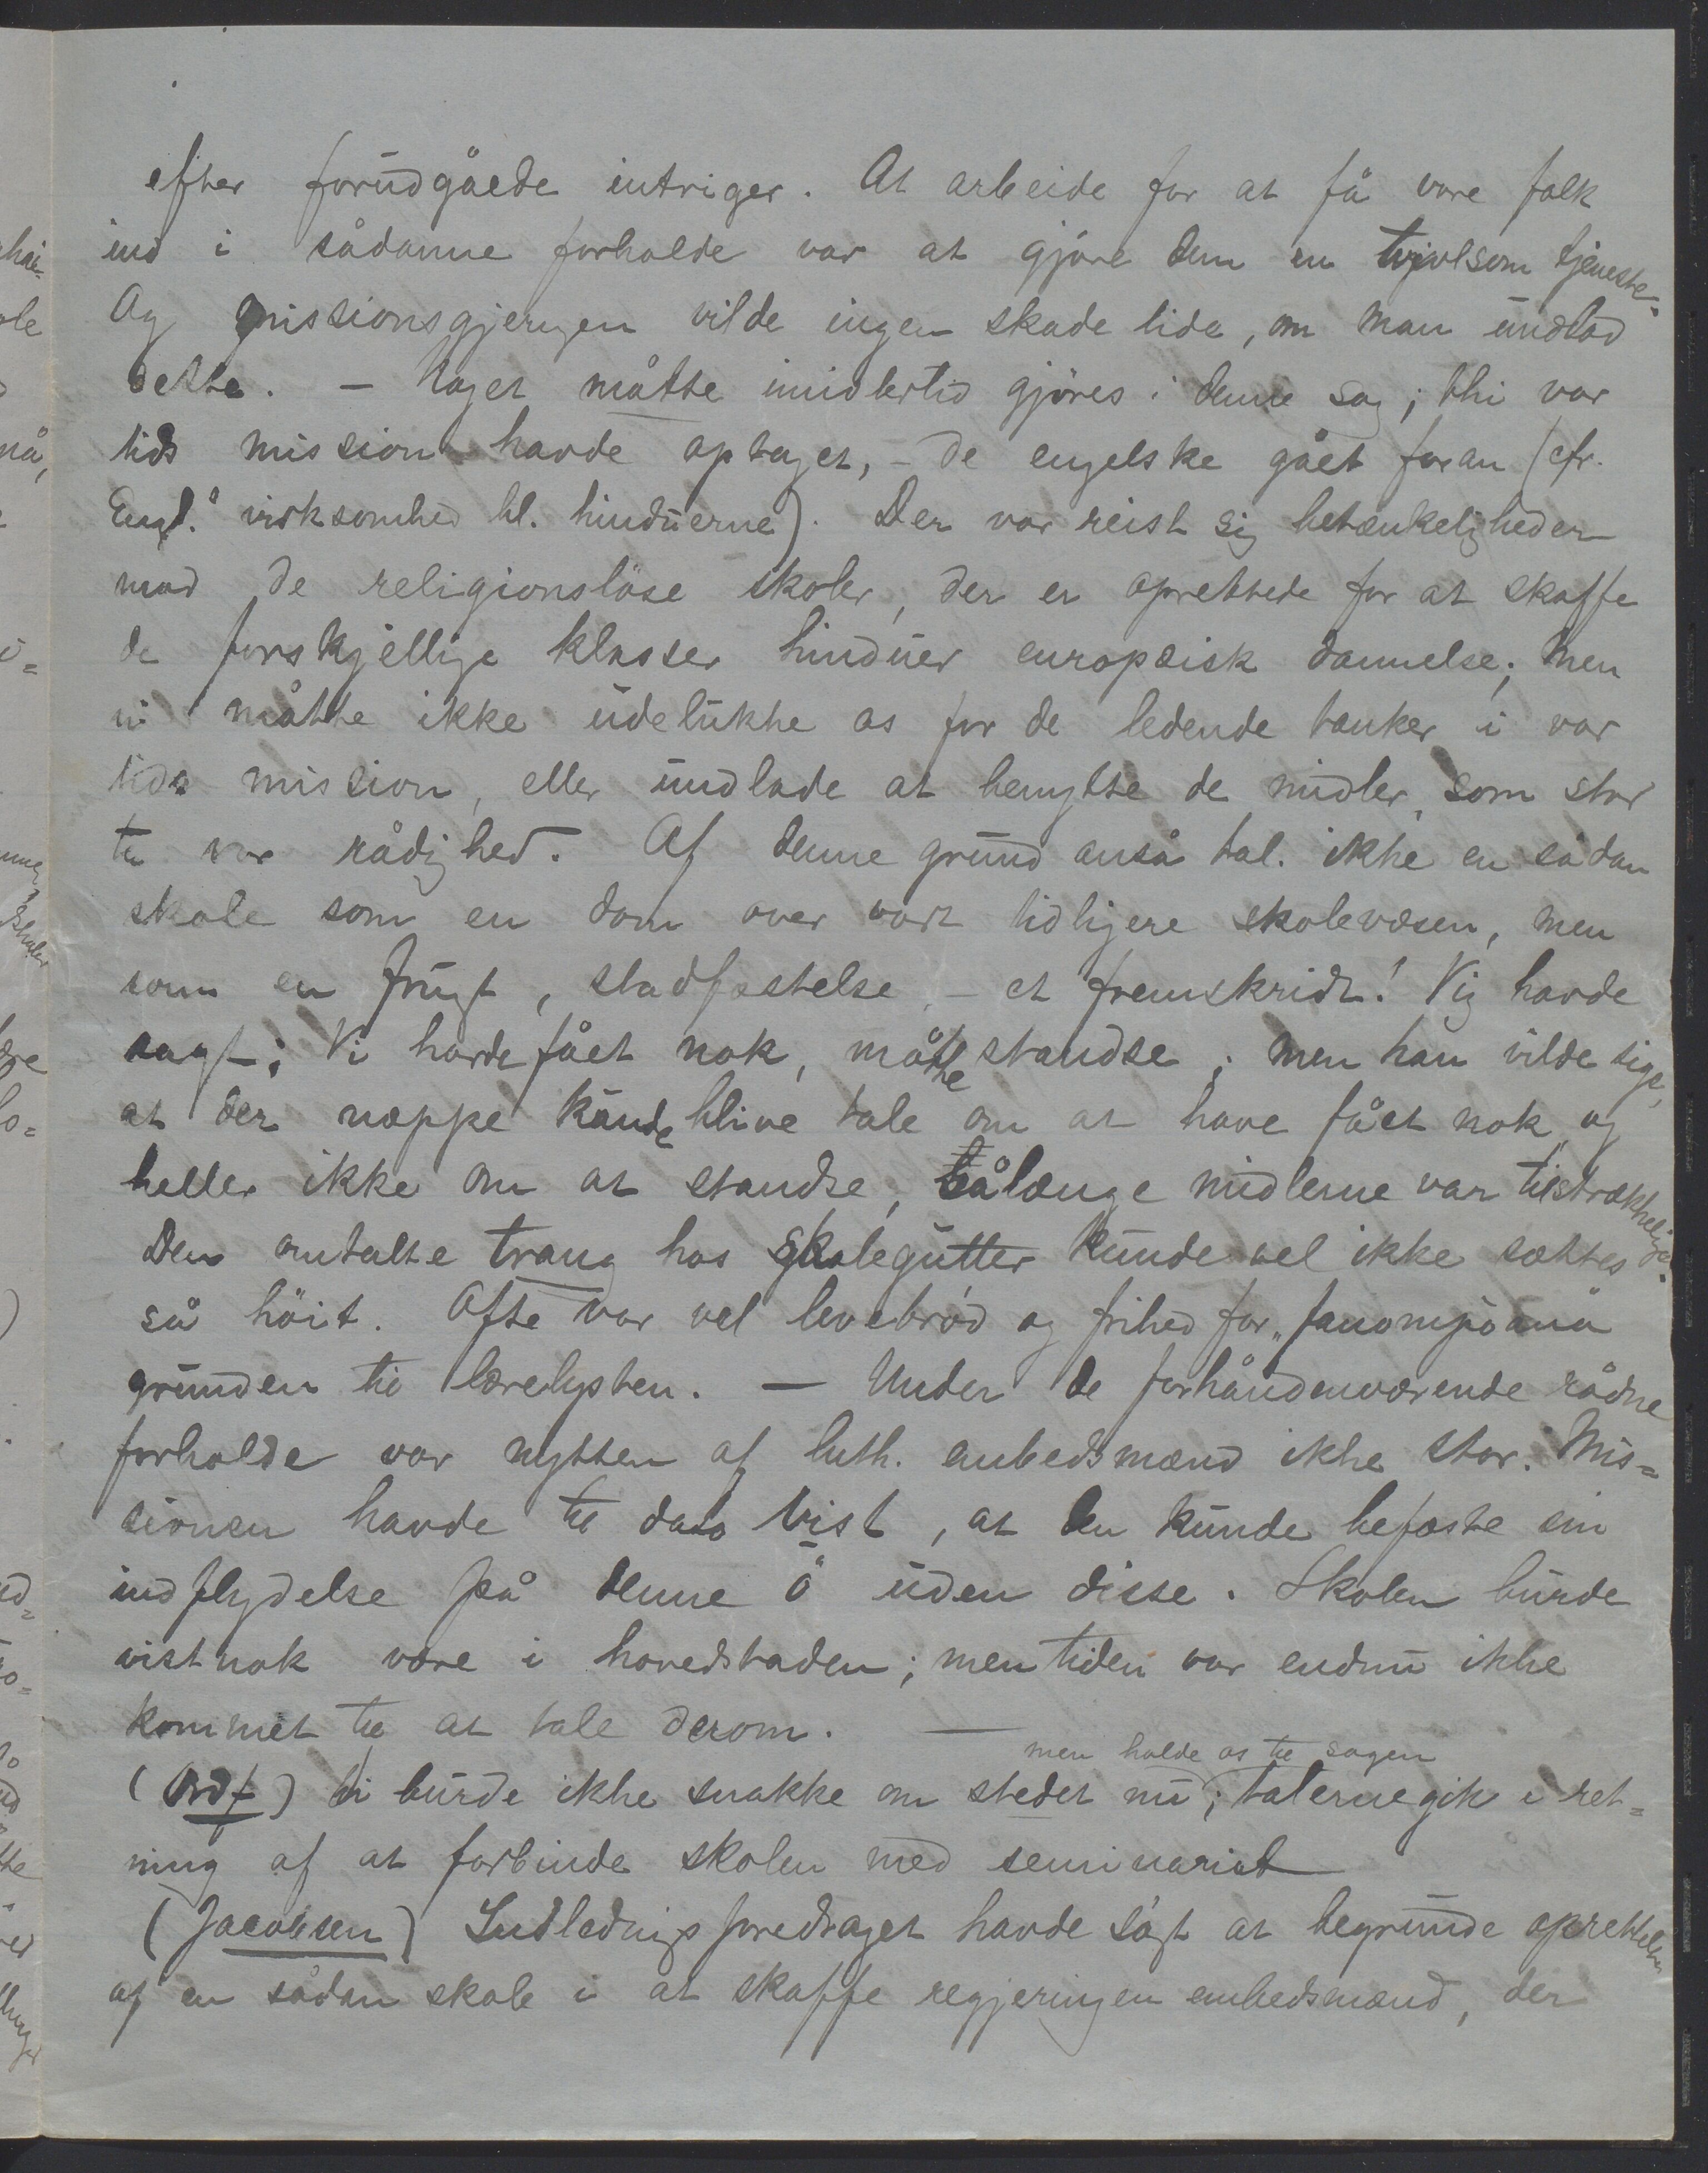 efter forudgåede intriger. At arbeide for at få vore folk
ind i sådanne forholde var at gjøre dem en tvivlsom tjeneste.
Og missionsgjerngen vilde ingen skade lide, om man undlod
dette. – Noget måtte imidlertid gjöres i denne sag; thi vor
tids mission havde optaget, – de engelske gået foran (cfr.
Engl.s virksomhed bl. hinduerne). Der var reist sig betænkeligheder
mod de religionslöse skoler, der er oprettede for at skaffe
de forskjellige klasser hinduer europæisk dannelse; men
vi måtte ikke udelukke os for de ledende tanker i vor
tids mission, eller undlade at benytte de midler, som stod
til vor rådighed. Af denne grund anså tal. ikke en sådan
skole som en dom over vort tidligere skolevæsen, men
som en frugt, stadfæstelse, – et fremskridt! Vig havde
sagt: Vi havde fået nok, måtte standse; men han vilde sige,
at der næppe kunde blive tale om at have fået nok, og
heller ikke om at standse, sålænge midlerne var tilstrækkelige.
Den omtalte trang hos skolegutter kunde vel ikke sættes
så höit. Ofte var vel levebröd og frihed for „fanompoana"
grunden til lærelysten. — Under de forhåndenværende rådne
forholde var nytten af luth. embedsmænd ikke stor. Mis=
sionen havde til dato vist, at den kunde befæste sin
indflydelse på denne ö uden disse. Skolen burde
vistnok være i hovedstaden; men tiden var endnu ikke
kommet til at tale derom. —
men holde os til sagen
(Ordf) Vi burde ikke snakke om stedet nu; talerne gik i ret=
ning af at forbinde skolen med seminariet
(Jacobsen) Indledningsforedraget havde sögt at begrunde oprettelsen
af en sådan skole i at skaffe regjeringen embedsmænd, der